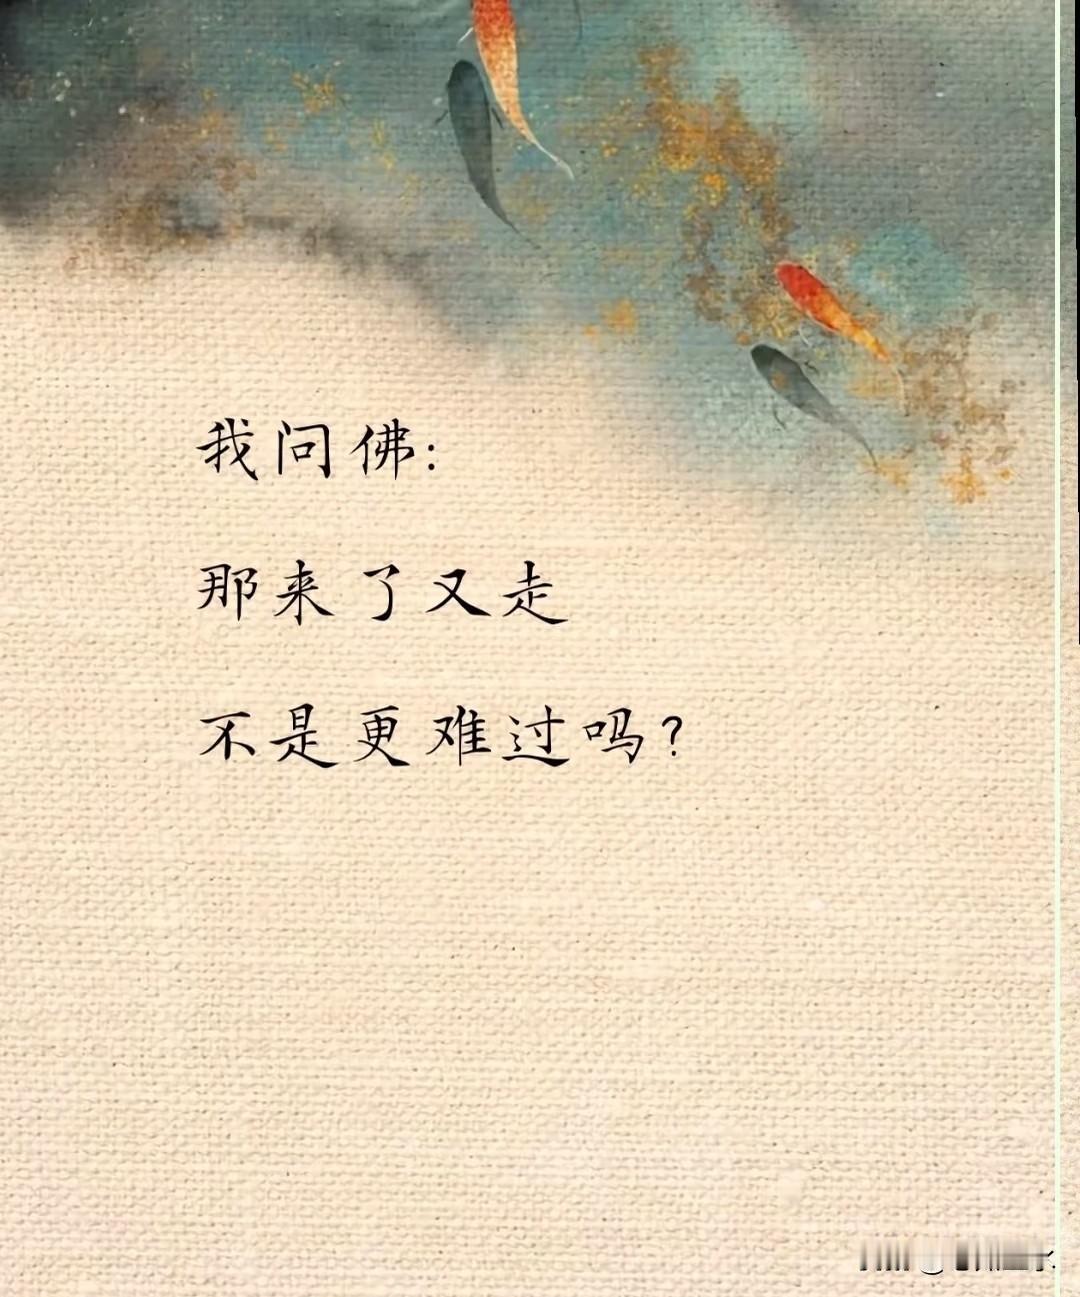 我问佛:
那来了又走
不是更难过吗?